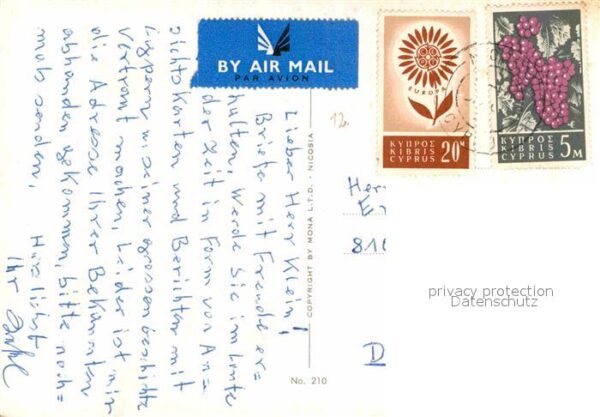 BY AIR MAIL
PAR AVION
EUROPA
ΚΥΠΡΟΣ
KIBRIS
CYPRUS
20 M
ΚΥΠΡΟΣ
KIBRIS
CYPRUS
5 M
12.
Lieber Herr Klein!
Brief mit Freude er=
halten, Werde Sie im Laufe
der Zeit in Form von An=
sichts Karten und Berichten mit
Zypern u. seiner grossen Geschichte
Vertraut machen, Leider ist mir
die Adresse Ihrer Bekannten
abhanden gekommen, bitte noch=
mals senden,
Herzlichst
Ihr
COPYRIGHT BY MONA L.T.D. - NICOSIA
No. 210
Her
81
D
privacy protection
Datenschutz